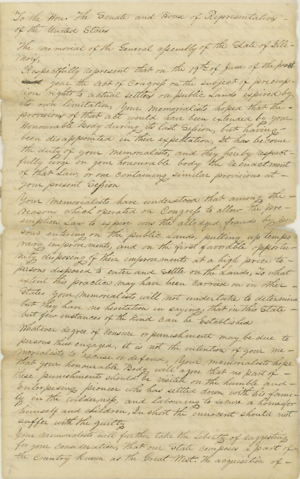 To the Hon. The Senate and House of Representatives
of the United States
The memorial of the General assembly of the State of Illi-
nois,
Respectfully represent that on the 19th of June of the
year the Act of Congress on the subject of preemp-
tion rights to actual settlers on public Lands expired by
its own limitation. Your Memorialists hoped that the
provisions of that act would have been extended by your
Honourable Body during its last Session, but having
been disappointed in their expectation, It has become
the duty of your memorialists, and they hereby respect-
fully urge on your honourable body the reenactment
of that Law, or one containing similar provisions at
your present Session
Your Memorialists have understood that among the
reasons which operated on Congress to allow the pre-
emption Law to expire was the alledged fraud by per-
sons entering on the public Lands, putting up tempo
rary improvements, and on the first favorable opportu-
nity disposing of their improvements at a high price to
persons disposed to enter and settle on the lands, to what
extent this practice may have been carried on in other
States your Memorialists will not undertake to determine
but they have no hesitation in saying, that in this State
but few instances of the kind can be Established
Whatever degree of censure or punishment may be due to
persons thus engaged, it is not the intention of your me-
morialists to excuse or defend, Your memorialists hope
that your honourable Body will agree that no part of
the punishment should be meted on the humble and
enterprising pioneer who has settled down with his fami-
ly in the wilderness, and labouring to secure a home for
himself and children, In short the innocent should not
suffer with the guilty
Your memorialists will further take the liberty of suggesting
for your consideration, that our State composes a part of
the Country known as the Great West, the acquisition of